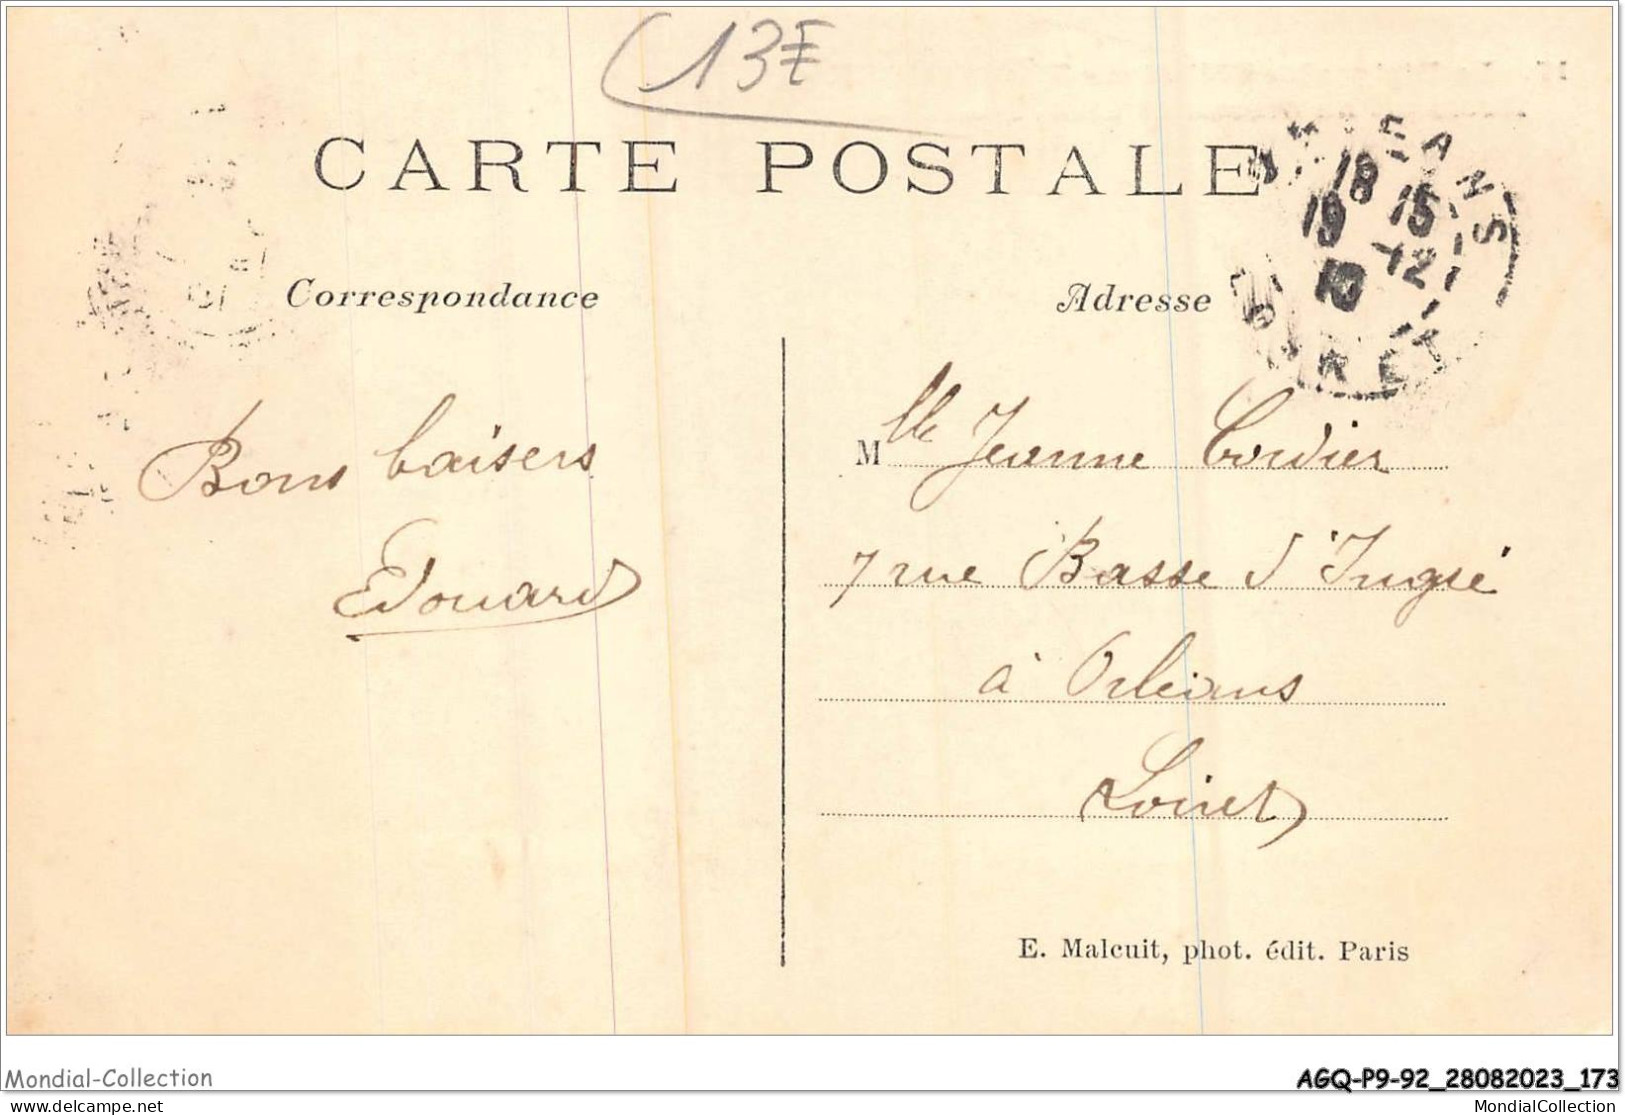 13E
CARTE POSTALE
ORLEANS
18 15
19 -12
10
LOIRET
Correspondance
Adresse
Bons baisers
Edouard
Mlle Jeanne Cordier
7 rue Basse d'Ingré
à Orléans
Loiret
E. Malcuit, phot. édit. Paris
Mondial-Collection
AGQ-P9-92_28082023_173
www.delcampe.net
MondialCollection